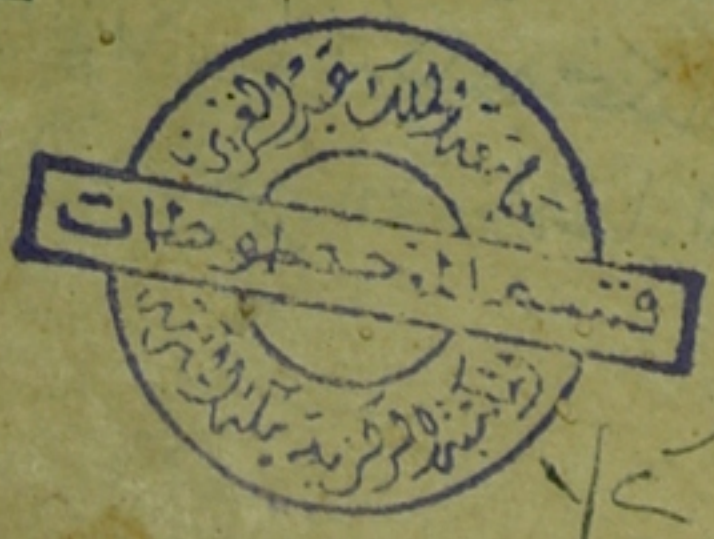 جامعة الملك عبد العزيز
قسم المخطوطات
المكتبة المركزية بمكة المكرمة